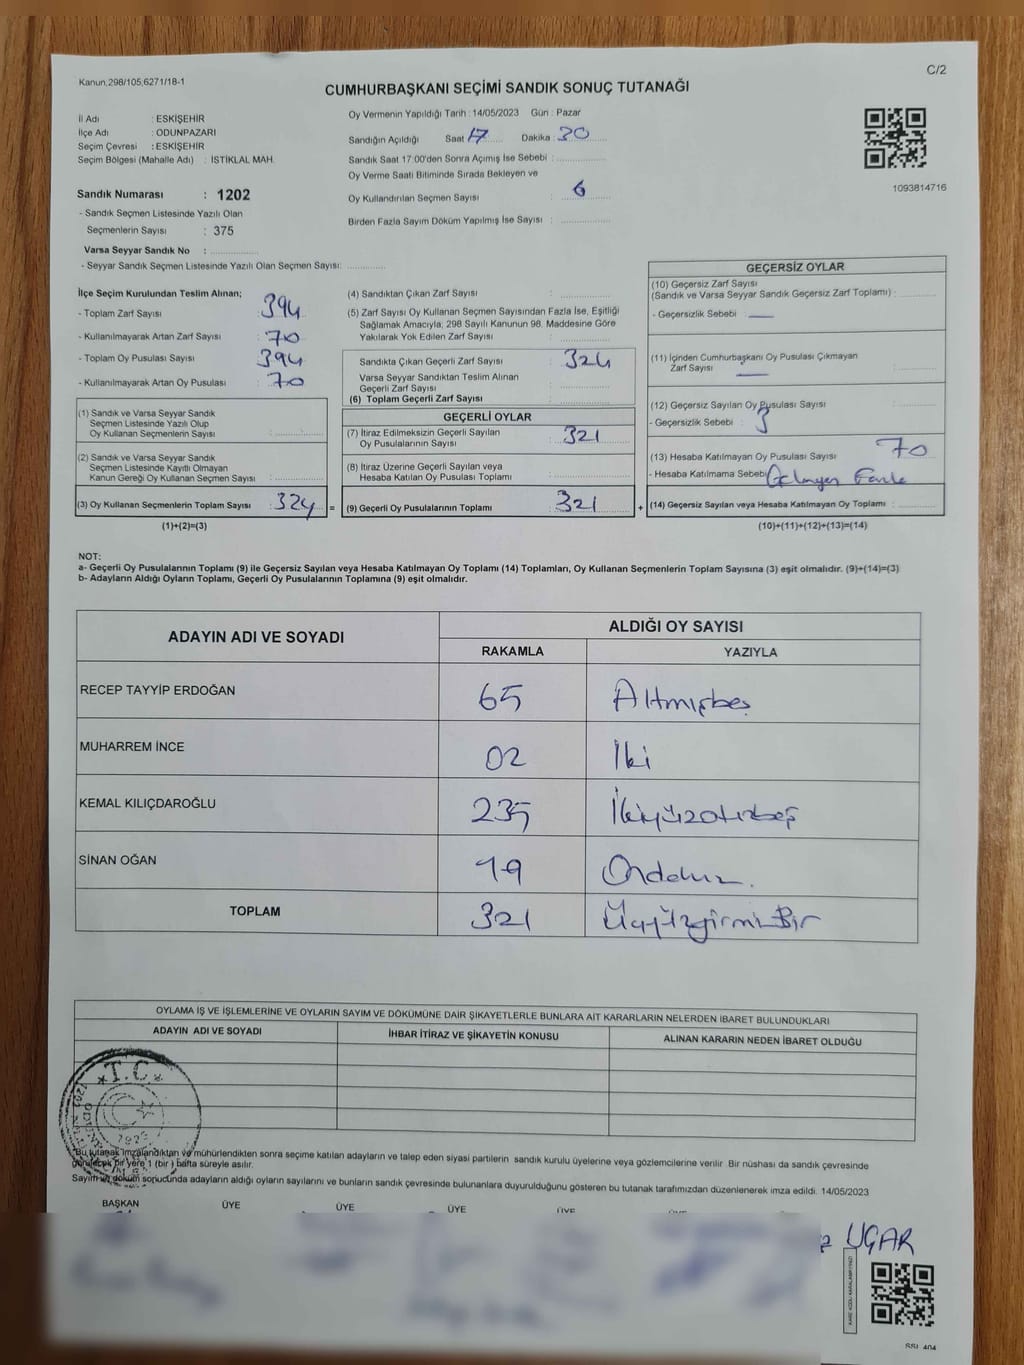 Kanun;298/105;6271/18-1
C/2
CUMHURBAŞKANI SEÇİMİ SANDIK SONUÇ TUTANAĞI
İl Adı : ESKİŞEHİR
İlçe Adı : ODUNPAZARI
Seçim Çevresi : ESKİŞEHİR
Seçim Bölgesi (Mahalle Adı) : İSTİKLAL MAH.
Sandık Numarası : 1202
- Sandık Seçmen Listesinde Yazılı Olan
Seçmenlerin Sayısı : 375
Varsa Seyyar Sandık No :
- Seyyar Sandık Seçmen Listesinde Yazılı Olan Seçmen Sayısı:
Oy Vermenin Yapıldığı Tarih : 14/05/2023 Gün : Pazar
Sandığın Açıldığı Saat 17 Dakika : 30
Sandık Saat 17:00'den Sonra Açımış İse Sebebi :
Oy Verme Saati Bitiminde Sırada Bekleyen ve
Oy Kullandırılan Seçmen Sayısı : 6
Birden Fazla Sayım Döküm Yapılmış İse Sayısı :
1093814716
İlçe Seçim Kurulundan Teslim Alınan;
- Toplam Zarf Sayısı : 394
- Kullanılmayarak Artan Zarf Sayısı : 70
- Toplam Oy Pusulası Sayısı : 394
- Kullanılmayarak Artan Oy Pusulası : 70
(1) Sandık ve Varsa Seyyar Sandık
Seçmen Listesinde Yazılı Olup
Oy Kullanan Seçmenlerin Sayısı :
(2) Sandık ve Varsa Seyyar Sandık
Seçmen Listesinde Kayıtlı Olmayan
Kanun Gereği Oy Kullanan Seçmen Sayısı :
(3) Oy Kullanan Seçmenlerin Toplam Sayısı : 324 =
(1)+(2)=(3)
(4) Sandıktan Çıkan Zarf Sayısı :
(5) Zarf Sayısı Oy Kullanan Seçmen Sayısından Fazla İse, Eşitliği
Sağlamak Amacıyla; 298 Sayılı Kanunun 98. Maddesine Göre
Yakılarak Yok Edilen Zarf Sayısı :
Sandıkta Çıkan Geçerli Zarf Sayısı : 324
Varsa Seyyar Sandıktan Teslim Alınan
Geçerli Zarf Sayısı :
(6) Toplam Geçerli Zarf Sayısı :
GEÇERLİ OYLAR
(7) İtiraz Edilmeksizin Geçerli Sayılan
Oy Pusulalarının Sayısı : 321
(8) İtiraz Üzerine Geçerli Sayılan veya
Hesaba Katılan Oy Pusulası Toplamı :
(9) Geçerli Oy Pusulalarının Toplamı : 321 +
GEÇERSİZ OYLAR
(10) Geçersiz Zarf Sayısı
(Sandık ve Varsa Seyyar Sandık Geçersiz Zarf Toplamı) :
- Geçersizlik Sebebi :
(11) İçinden Cumhurbaşkanı Oy Pusulası Çıkmayan
Zarf Sayısı :
(12) Geçersiz Sayılan Oy Pusulası Sayısı :
- Geçersizlik Sebebi : 3
(13) Hesaba Katılmayan Oy Pusulası Sayısı : 70
- Hesaba Katılmama Sebebi
(14) Geçersiz Sayılan veya Hesaba Katılmayan Oy Toplamı :
(10)+(11)+(12)+(13)=(14)
NOT:
a- Geçerli Oy Pusulalarının Toplamı (9) ile Geçersiz Sayılan veya Hesaba Katılmayan Oy Toplamı (14) Toplamları, Oy Kullanan Seçmenlerin Toplam Sayısına (3) eşit olmalıdır. (9)+(14)=(3)
b- Adayların Aldığı Oyların Toplamı, Geçerli Oy Pusulalarının Toplamına (9) eşit olmalıdır.
ADAYIN ADI VE SOYADI ALDIĞI OY SAYISI
RAKAMLA YAZIYLA
RECEP TAYYİP ERDOĞAN 65 Altmışbeş
MUHARREM İNCE 02 İki
KEMAL KILIÇDAROĞLU 235 İkiyüzotuzbeş
SİNAN OĞAN 19 Ondokuz.
TOPLAM 321 ÜçyüzyirmiBir
OYLAMA İŞ VE İŞLEMLERİNE VE OYLARIN SAYIM VE DÖKÜMÜNE DAİR ŞİKAYETLERLE BUNLARA AİT KARARLARIN NELERDEN İBARET BULUNDUKLARI
ADAYIN ADI VE SOYADI İHBAR İTİRAZ VE ŞİKAYETİN KONUSU ALINAN KARARIN NEDEN İBARET OLDUĞU
T.C.
1923
*Bu tutanak imzalandıktan ve mühürlendikten sonra seçime katılan adayların ve talep eden siyasi partilerin sandık kurulu üyelerine veya gözlemcilerine verilir. Bir nüshası da sandık çevresinde
görülecek bir yere 1 (bir ) hafta süreyle asılır.
Sayım ve döküm sonucunda adayların aldığı oyların sayılarını ve bunların sandık çevresinde bulunanlara duyurulduğunu gösteren bu tutanak tarafımızdan düzenlenerek imza edildi. 14/05/2023
BAŞKAN ÜYE ÜYE ÜYE ÜYE
UÇAR
KARE KODU KARALAMAYINIZ!